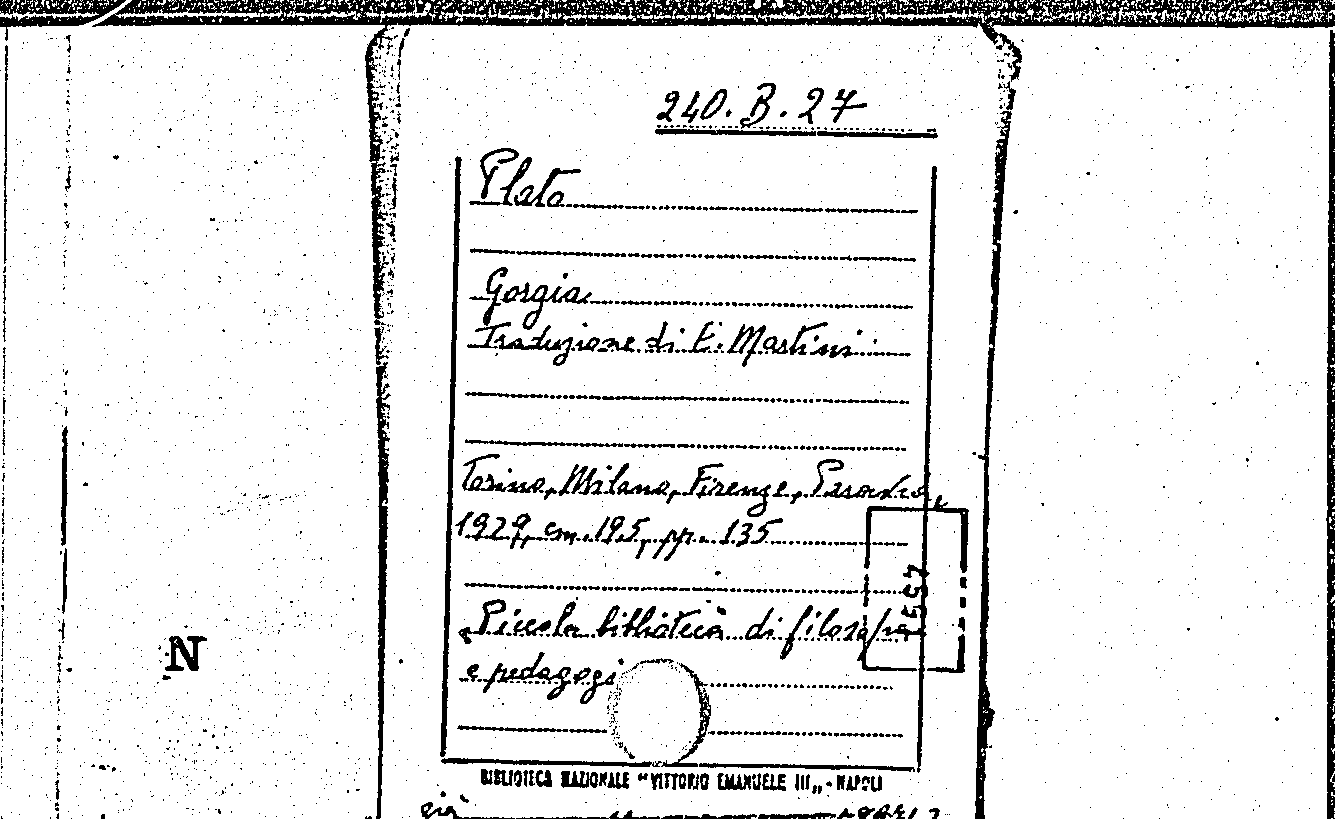 240.B.27
Plato
Gorgia
Traduzione di E. Martini
Torino, Milano, Firenze, Paravia,
1929, cm. 19.5, pp. 135
„Piccola biblioteca di filosofia
e pedagogi
N
BIBLIOTECA NAZIONALE "VITTORIO EMANUELE III„ - NAPOLI
già